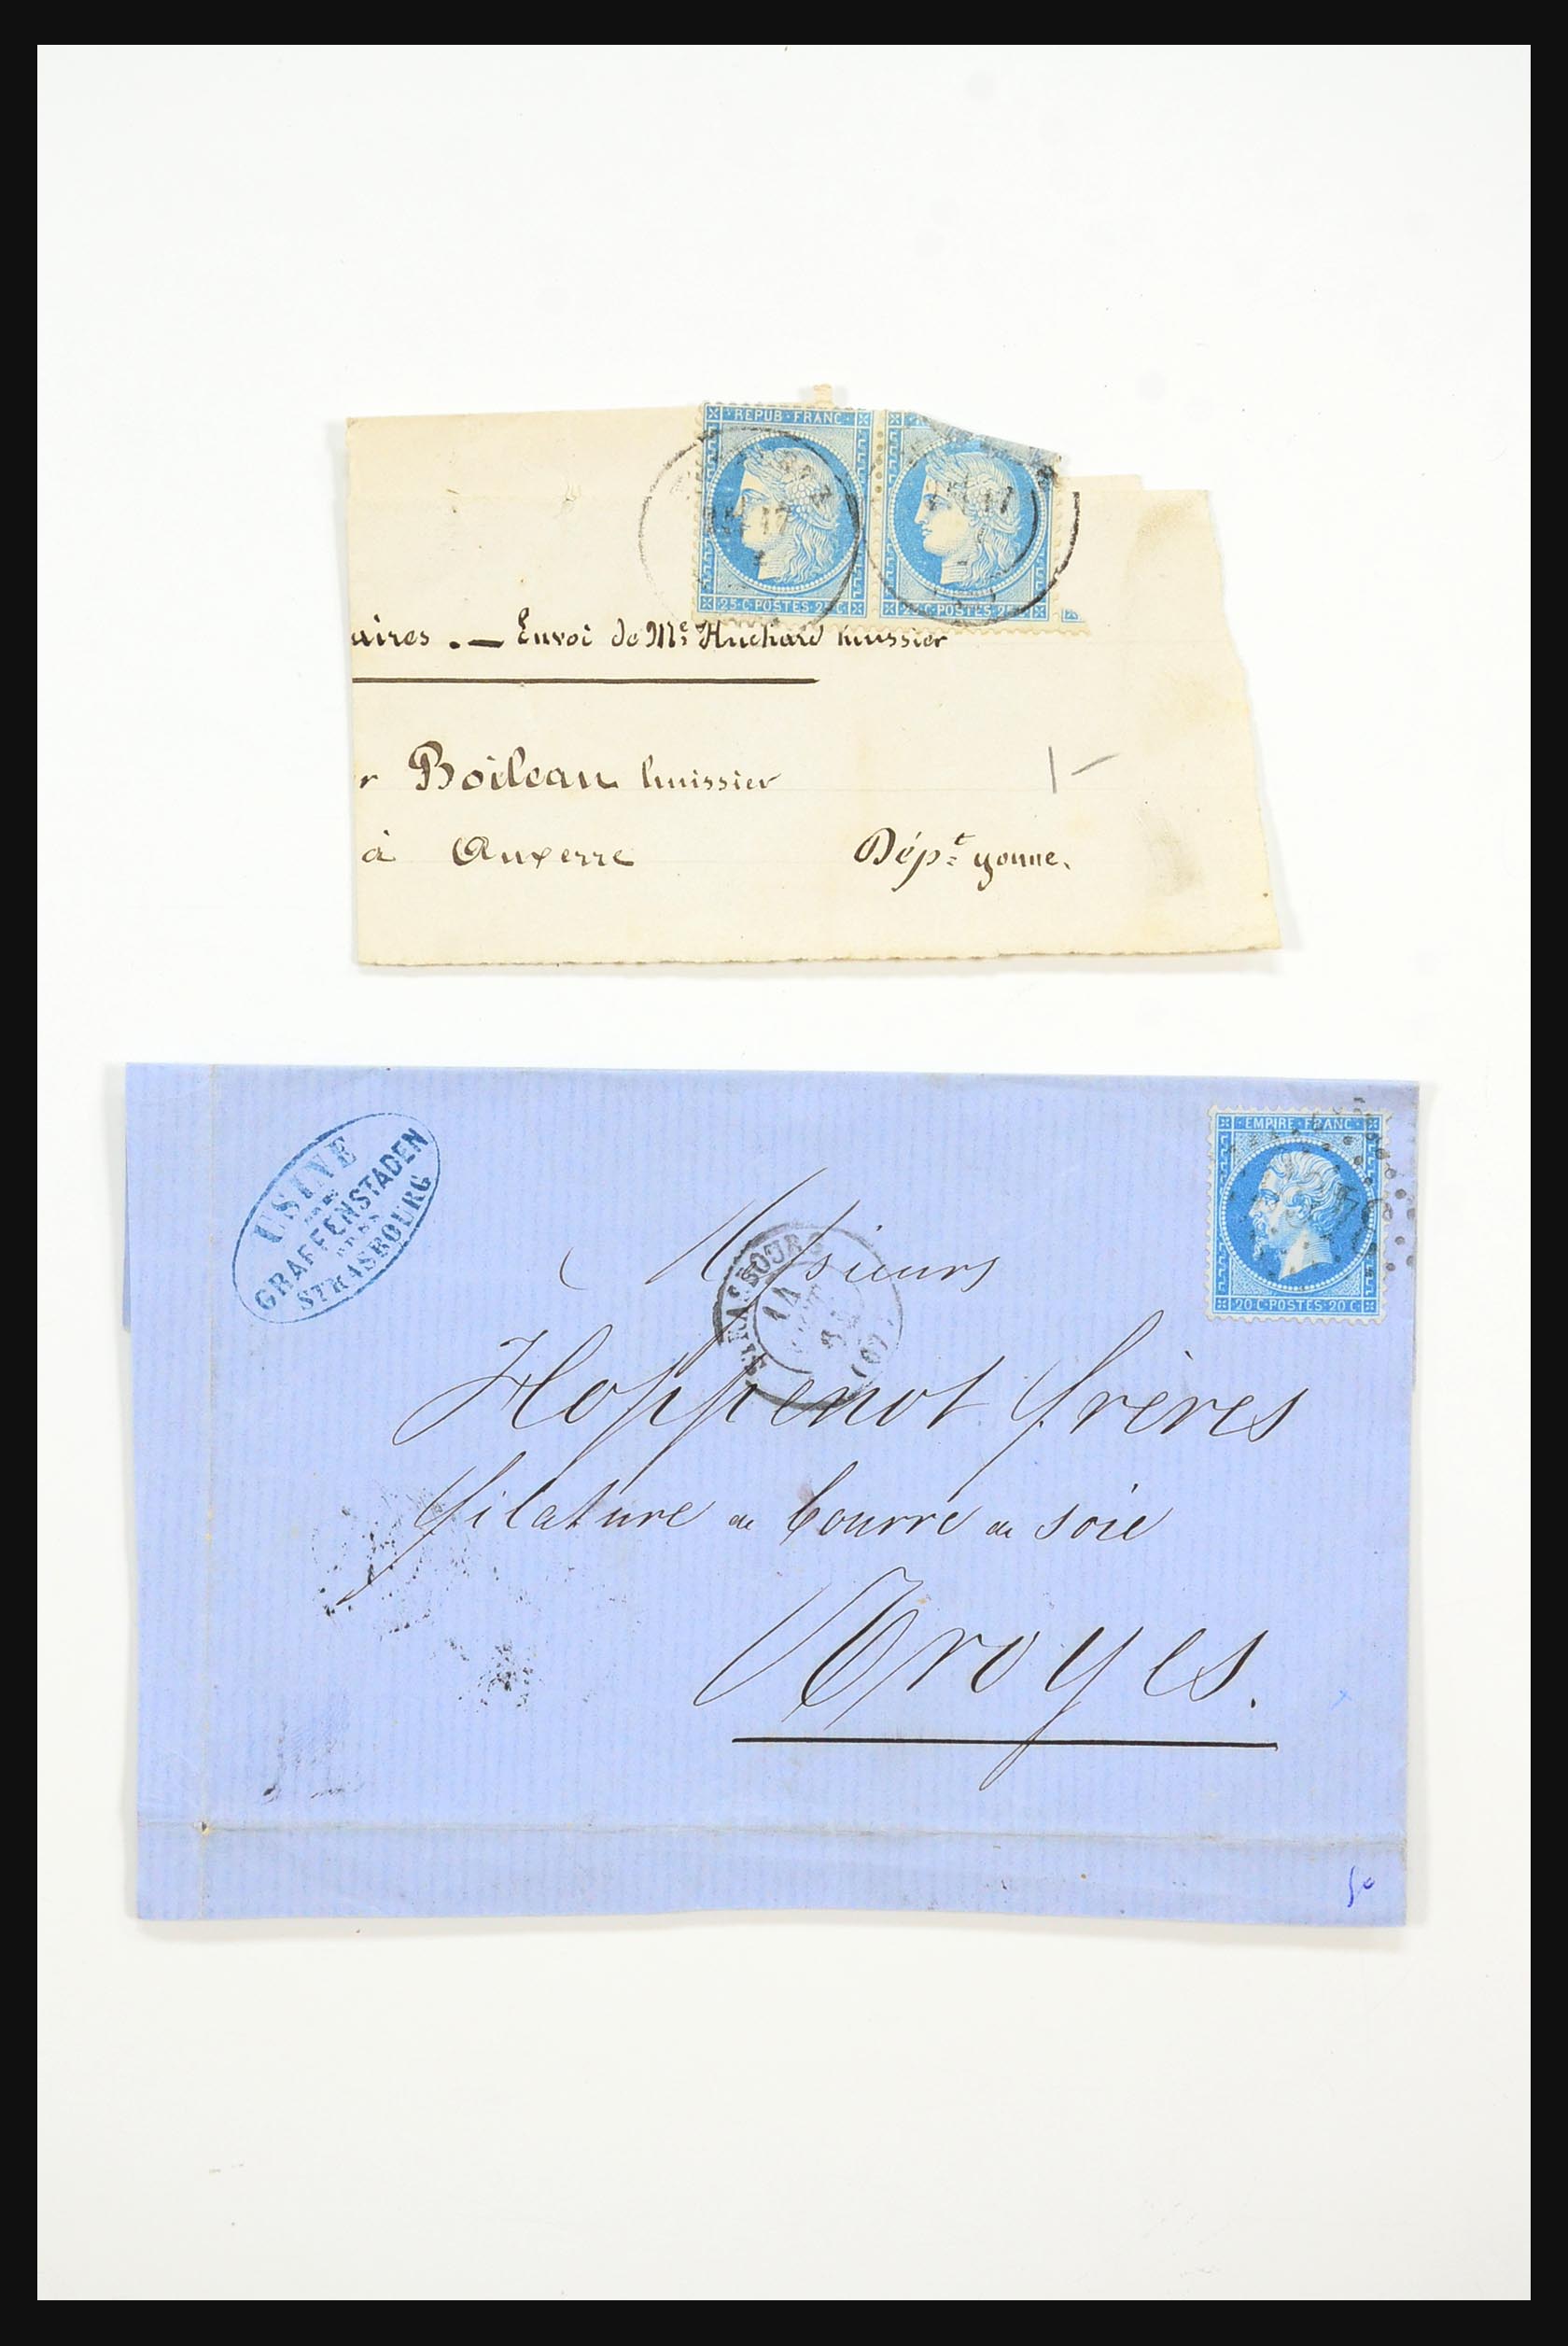 REPUB·FRANC
17
17
25·C·POSTES·25·C
C·POSTES·25
aires. — Envoi de Me Huchard huissier
r Boileau huissier
à Auxerre Dépt yonne.
USINE
DE
GRAFFENSTADEN
PRÈS
STRASBOURG
EMPIRE·FRANC
20·C·POSTES·20·C
STRASBOURG
14
(67)
Messieurs
Hoppenot frères
filature de bourre de soie
Troyes.
50